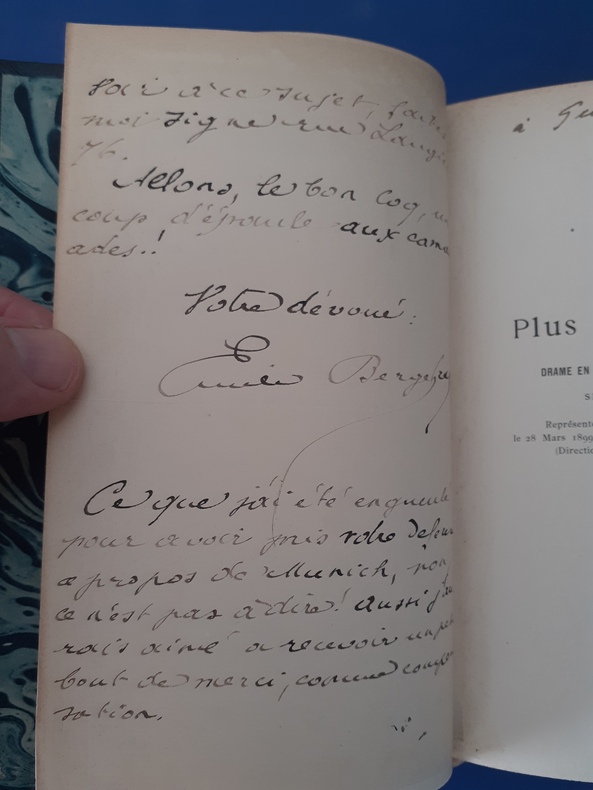 Voir à ce sujet, faites
moi signe rue Laugier
76.
Allons, le bon Coq, un
coup d'épaule aux camar
ades.!
Votre dévoué:
Emile Bergerat
Ce que j'ai été engueulé
pour avoir pris votre defense
a propos de Munich, non,
ce n'est pas à dire! Aussi j'au
rais aimé a recevoir un petit
bout de merci, comme compen
sation.
à
Plus
DRAME EN
Représenté
le 28 Mars 1899
(Directio